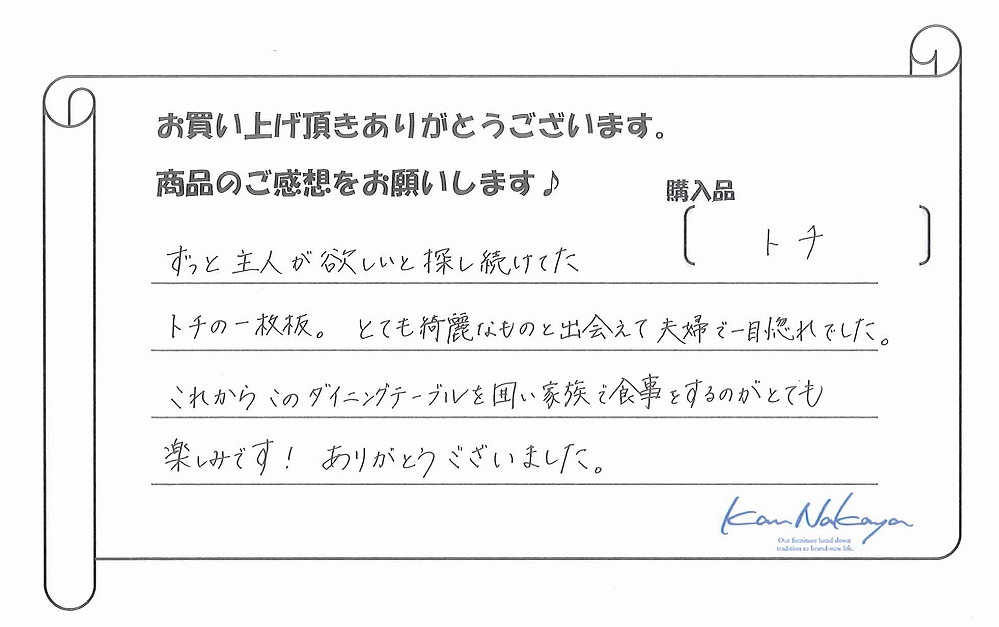 お買い上げ頂きありがとうございます。
商品のご感想をお願いします♪
購入品
トチ
ずっと主人が欲しいと探し続けてた
トチの一枚板。とても綺麗なものと出会えて夫婦で一目惚れでした。
これからこのダイニングテーブルを囲い家族で食事をするのがとても
楽しみです！ありがとうございました。
Kan Nakaya
Our furniture hand down
tradition to brand-new life.